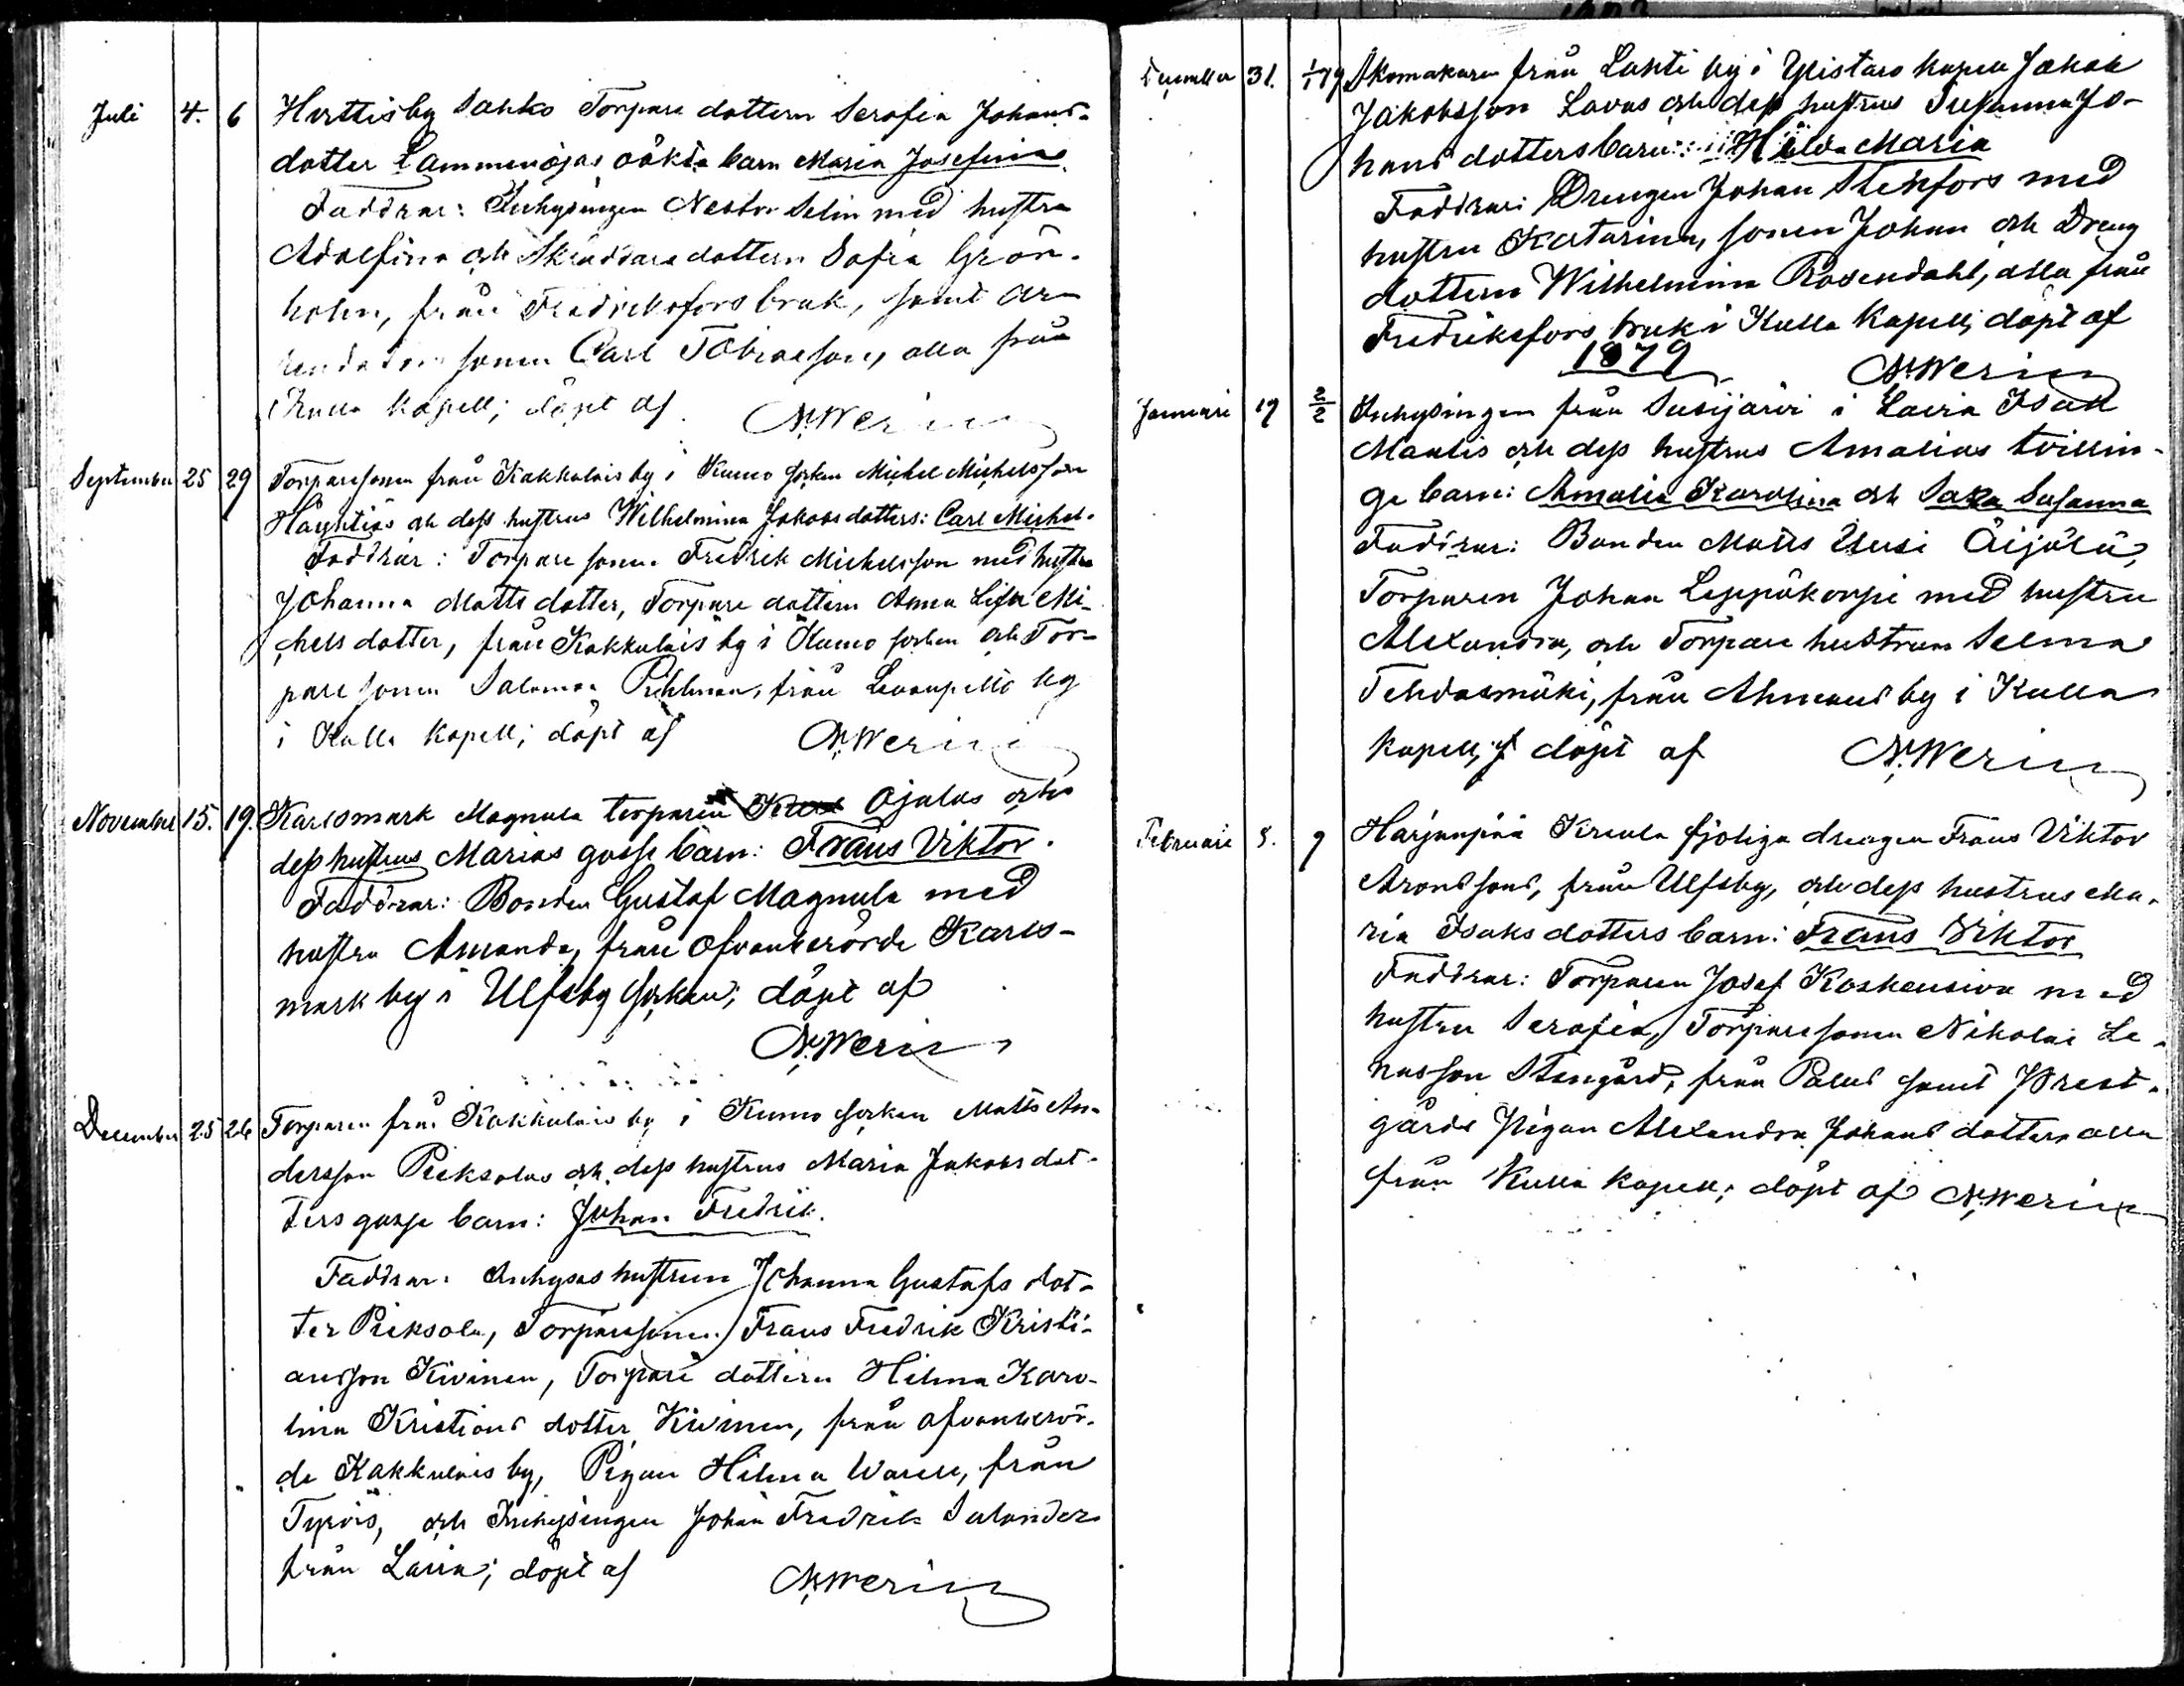 Juli 4. 6 Hvittisby Sahko Torpare dottern Serafia Johans-
dotter Lammenojas oäkta barn Maria Josefina.
Faddrar: Inhysingen Nestor Selin med hustru
Adolfina och Skräddare dottern Sofia Grön-
holm, från Fredriksfors bruk, samt Ar-
rendators sonen Carl Tobiasson, alla från
Kulla kapell; döpt af N. Werin
September 25 29 Torparesonen från Kakkulais by i Kumo socken Michel Michelsson
Häyhtiös och dess hustrus Wilhelmina Jakobsdotters: Carl Michel.
Faddrar: Torpare sonen Fredrik Michelsson med hustru
Johanna Matts dotter, Torpare dottern Anna Lisa Mi-
chels dotter, från Kakkulais by i Kumo socken och Tor-
pare sonen Salomon Pihlman, från Levanpelto by
i Kulla kapell; döpt af N. Werin
November 15. 19. Karlsmark Magnula torparen Ojalas och
dess hustrus Marias gosse barn: Frans Viktor.
Faddrar: Bonden Gustaf Magnula med
hustru Amanda, från ofvanberörde Karls-
mark by i Ulfsby socken; döpt af
N. Werin
December 25 26 Torparen från Kakkulais by i Kumo socken Matts An-
dersson Pieksolas och dess hustrus Maria Jakobs dot-
ters gosse barn: Johan Fredrik.
Faddrar: Inhyses hustrun Johanna Gustafs dot-
ter Pieksola, Torparesonen Frans Fredrik Kristi-
ansson Kivinen, Torpare dottern Hilma Karo-
lina Kristians dotter Kivinen, från ofvanberör-
de Kakkulais by, Pigan Hilma, från
Tyrvis, och Inhysingen Johan Fredrik Salander
från Lavia; döpt af N. Werin
December 31. 1/1 79 Skomakaren från Lahti by i Ylistaro kapell Jakob
Jakobsson Lavas och dess hustrus Susanna Jo-
hans dotters barn: Hilda Maria
Faddrar: Drengen Johan Stenfors med
hustru Katarina, sonen Johan och Dreng
dottern Wilhelmina Rosendahl, alla från
Fredriksfors bruk i Kulla Kapell; döpt af
1879 N. Werin
Januari 19 2/2 Inhysingen från Susijärvi i Lavia Isak
Mantis och dess hustrus Amalias tvillin-
ge barn: Amalia Karolina och Saka Susanna
Faddrar: Bonden Matts Uusi Äijälä,
Torparen Johan Leppäkorpi med hustru
Alexandra, och Torpare hustrun Selma
Tehdasmäki, från Ahmaus by i Kulla
kapell; döpt af N. Werin
Februari 5. 9 Harjunpää Kreula drengen Frans Viktor
Aronssons, från Ulfsby, och dess hustrus Ma-
ria Isaks dotters barn: Frans Viktor
Faddrar: Torparen Josef Koskensiva med
hustru Serafia, Torpare sonen Nikolai Le-
nusson Stengård, från Palus samt Prest-
gårds Pigan Alexandra Johans dotter alla
från Kulla kapell; döpt af N. Werin